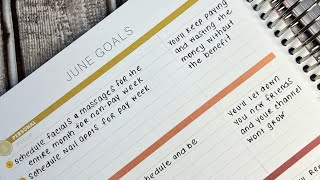 JUNE GOALS
PERSONAL
schedule facials & massages for the
entire month for non-pay week
schedule nail appts for pay week
You'll keep paying
and wasting the
money without
the benefit
schedule and be
You'll let down
you new friends
and your channel
wont grow